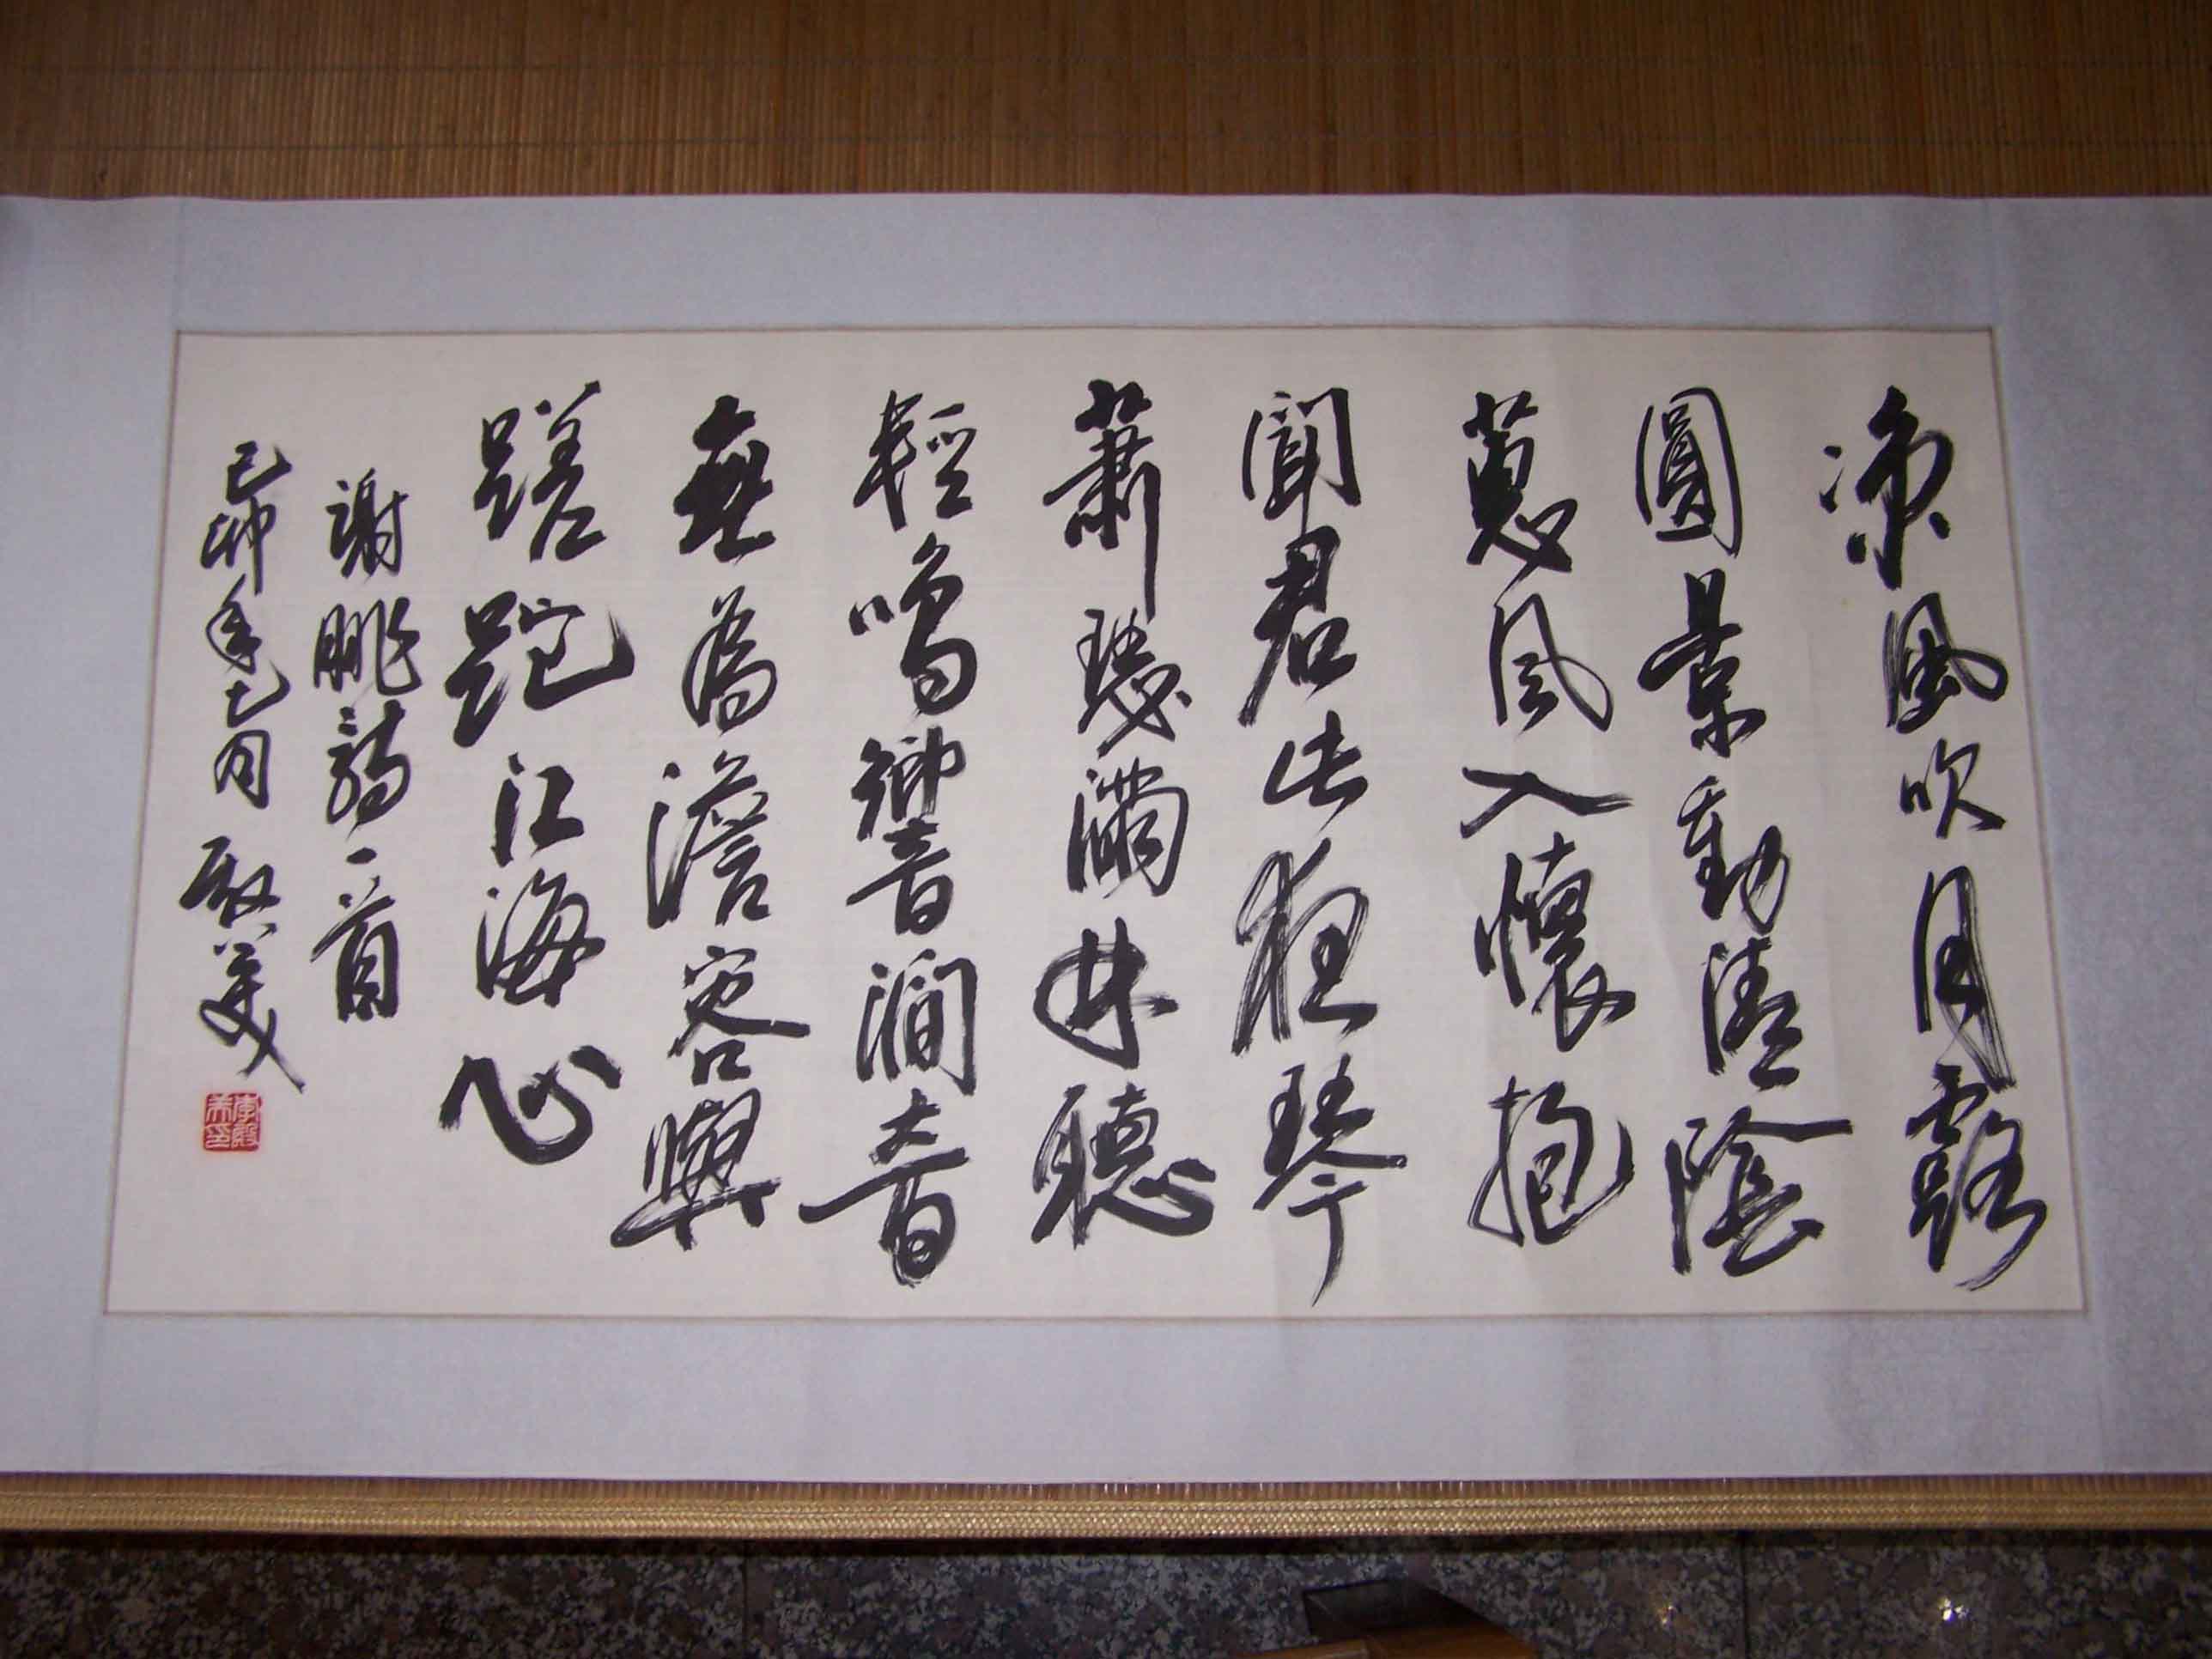 涼風吹月露
圓景動清陰
蕙風入懷抱
聞君此夜琴
蕭瑟滿林聽
輕鳴響澗音
無為澹容與
蹉跎江海心
謝朓詩一首
己卯年七月 殿美
李殿美印